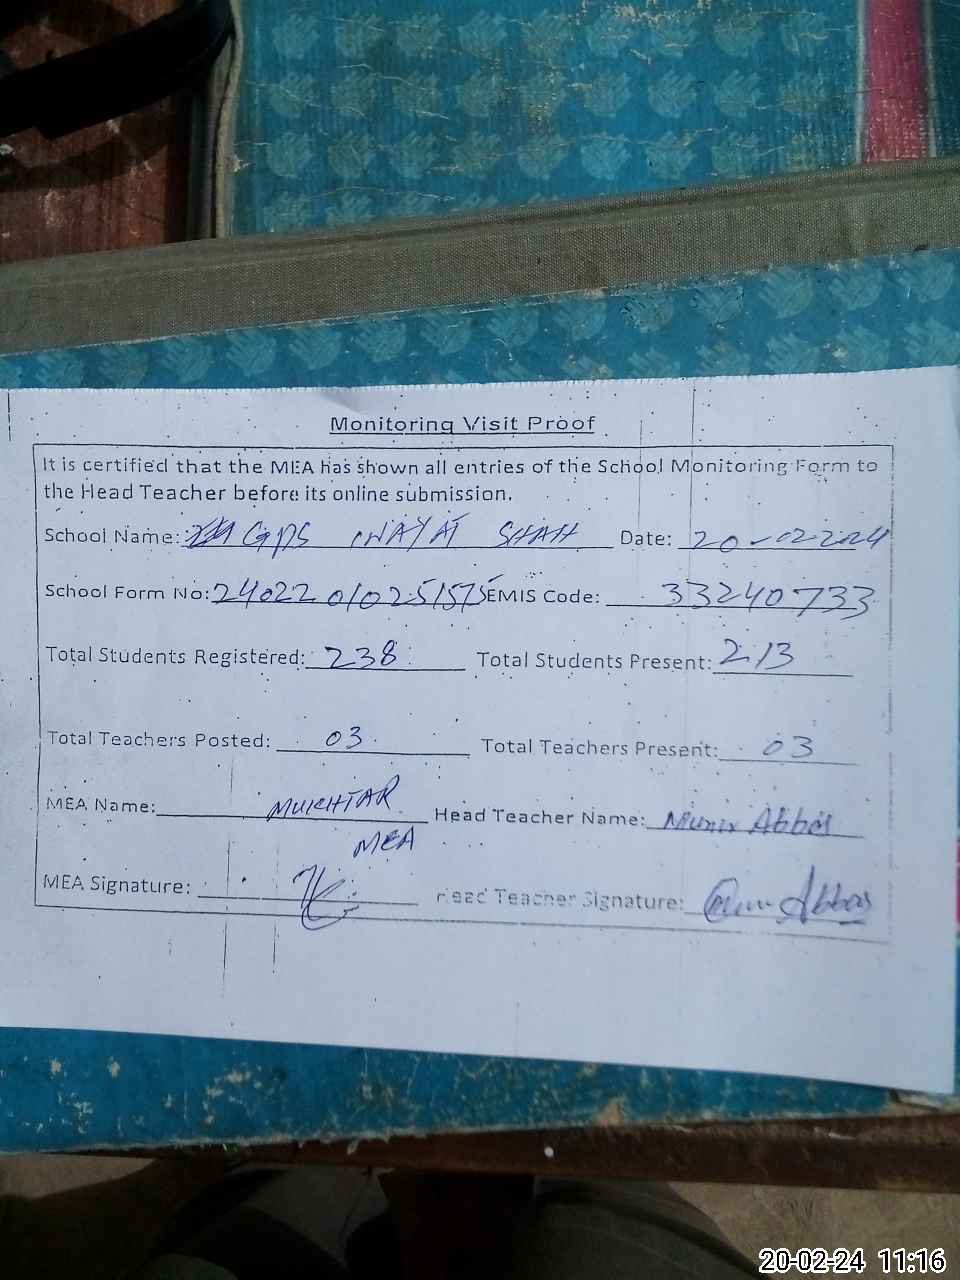 Monitoring Visit Proof
It is certified that the MEA has shown all entries of the School Monitoring Form to
the Head Teacher before its online submission.
School Name: GPS INAYAT SHAH Date: 20-02-2024
School Form No: EMIS Code: 33240733
Total Students Registered: 238 Total Students Present: 213
Total Teachers Posted: 03 Total Teachers Present: 03
MEA Name: MUKHTAR Head Teacher Name: Munir Abbas
MEA
MEA Signature: Head Teacher Signature: Abbas
20-02-24 11:16